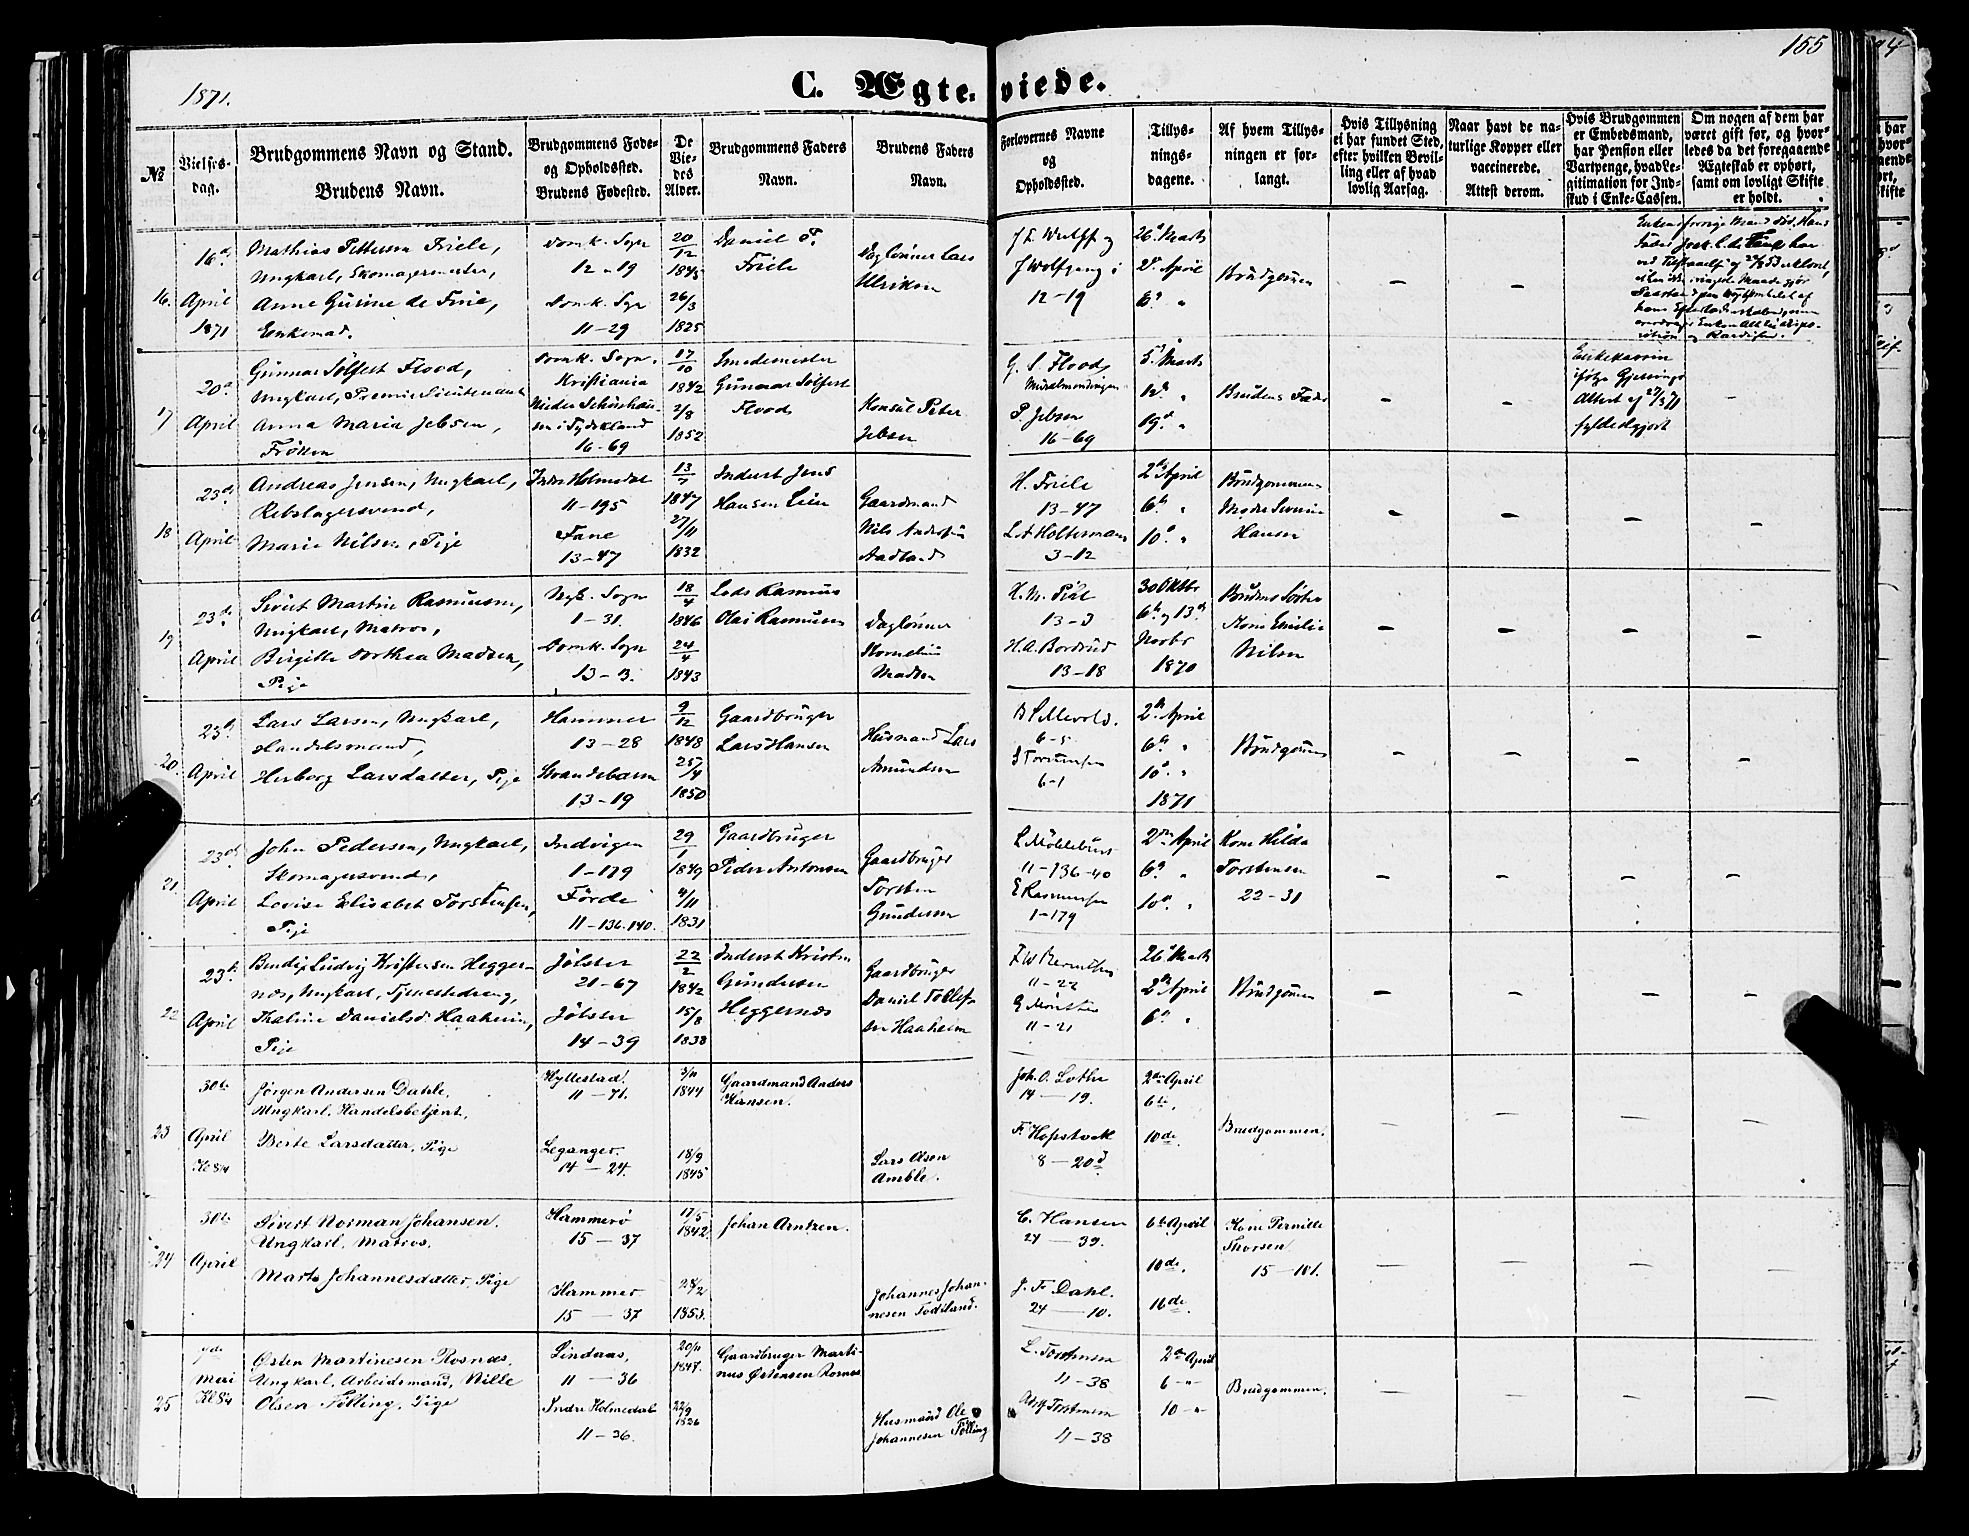 1871.
C. Ægteviede.
155
No
Vielses-dag.
Brudgommens Navn og Stand.
Brudens Navn.
Brudgommens Føde-
og Opholdssted.
Brudens Fødested.
De
Vie-
des
Alder.
Brudgommens Faders
Navn.
Brudens Faders
Navn.
Forlovernes Navne
og
Opholdssted.
Tillys-
nings-
dagene.
Af hvem Tillys-
ningen er for-
langt.
Hvis Tillysning
ei har fundet Sted,
efter hvilken Bevil-
ling eller af hvad
lovlig Aarsag.
Naar havt de na-
turlige Kopper eller
vaccinerede.
Attest derom.
Hvis Brudgommen
er Embedsmand,
har Pension eller
Vartpenge, hvad Le-
gitimation for Ind-
skud i Enke-Cassen.
Om nogen af dem har
været gift før, og hvor-
ledes da det foregaaende
Ægteskab er ophørt,
samt om lovligt Skifte
er holdt.
16.
16de
April
1871
Mathias Pettersen Friele,
Ungkarl, Skomagermester,
Anne Gurine de Fine,
Enkemad.
Domk. Sogn
12-19
Domk. Sogn
11-29
20/12
1845
26/3
1825
Daniel P.
Friele
Daglønner Lars
Ulriksen
J Wolfgang i
12-19
26de Marts
2de April
6te "
Brudgommen
17
20de
April
Gunnar Sølfest Flood,
Ungkarl, Premier Lieutenant
Anna Maria Jebsen,
Frøken
Domk. Sogn.
Kristiania
i Tydskland
16-69
17/10
1842
2/8
1852
Smedemester
Gunnar Sølfest
Flood
Konsul Peter
Jebsen
G. S. Flood
P. Jebsen
16-69
5te Marts
12te "
19de "
Brudens Fader
Enkekassen
ifølge Gjessings
Attest af 27/3 71
fyldestgjort
18
23de
April
Andreas Jensen, Ungkarl,
Rebslagersvend,
Marie Nilsen, Pige
Indre Holmedal
11-195
Fane
13-47
13/7
1847
27/11
1832
Inderst Jens
Hansen Lien
Gaardmand
Nils Andersen
Aadland
H. Friele
13-47
L A Holtermann
3-12
2den April
6te "
10de "
Brudgommens
Moder Severine
Hansen
19
23de
April
Sivert Martin Rasmussen,
Ungkarl, Matros,
Birgitte Dorthea Madsen,
Pige
Nyk. Sogn
1-31.
Domk. Sogn
13-3.
18/4
1846
24/4
1843
Lods Rasmus
Olai Rasmussen
Daglønner
Kornelius
Madsen
H. M. Piil
13-3
H. A. Bordrud
13-18
30 Oktbr
6te og 13de
Novbr
1870
Brudens Søster
Kone Emilie
Nilsen
20.
23de
April
Lars Larsen, Ungkarl,
Handelsmand,
Herborg Larsdatter, Pige
Hammer
13-28
Strandebarm
13-19
9/12
1848
25/4
1850
Gaardbruger
Lars Hansen
Husmand Lars
Amundsen
6-5
S Torstensen
6-1
2den April
6te "
10de "
1871
Brudgommen
21.
23de
April
John Pedersen, Ungkarl,
Skomagersvend,
Lovise Elisabet Torstensen,
Pige
Indvigen
1-179
Førde
11-136.140.
29/1
1849
4/11
1831
Gaardbruger
Peder Antonsen
Gaardbruger
Torsten
Gundersen
11-136-40
E Rasmussen
1-179
2den April
6te "
10de "
Kone Hilda
Torstensen
22-31
22
23de
April
Bendix Ludvig Kristensen Hegger-
næs, Ungkarl, Tjenestedreng,
Katrine Danielsd. Haaheim,
Pige
Jølster
21-67
Jølster
14-39
22/2
1842
15/8
1838
Inderst Kristen
Gundersen
Heggernæs
Gaardbruger
Daniel Tollefs-
sen Haaheim
11-22
11-21
26de Marts
2den April
6te "
Brudgommen
23
30te
April
Kl 8/4
Jørgen Andersen Dahle,
Ungkarl, Handelsbetjent,
Berte Larsdatter, Pige
Hyllestad.
11 - 71.
Leganger.
14 - 24.
3/11
1844
18/9
1845
Gaardmand Anders
Hansen.
Lars Olsen
Amble.
Joh. O. Lothe
14 - 19.
F. Hopstock
8 - 20d
2den April
6te.
10de.
Brudgommen.
24
30te
April
Sivert Norman Johansen.
Ungkarl, Matros.
Marta Johannesdatter, Pige
Hammerø
15 - 37
Hammer
15 - 37
17/5
1842.
28/2
1853.
Johan Arntzen.
Johannes Johan-
nesen Todtland.
C. Hansen
24 - 39.
J. F. Dahl.
24 - 10.
6te April
10de.
16de.
Kone Pernille
Thorsen
15 - 101.
25
7de
Mai
Kl 8/4
Østen Martinesen Rosnæs,
Ungkarl, Arbeidsmand, Nille
Olsen Følling, Pige
Lindaas,
11 - 36
Indre Holmedal
11 - 36.
20/11
1847.
22/9
1826
Gaardbruger Marti-
nus Østensen Rosnæs
Husmand Ole
Johannesen Følling
L. Torstensen
11-38
Torstensen
11-38
2den April
6 - "
10 - "
Brudgommen.